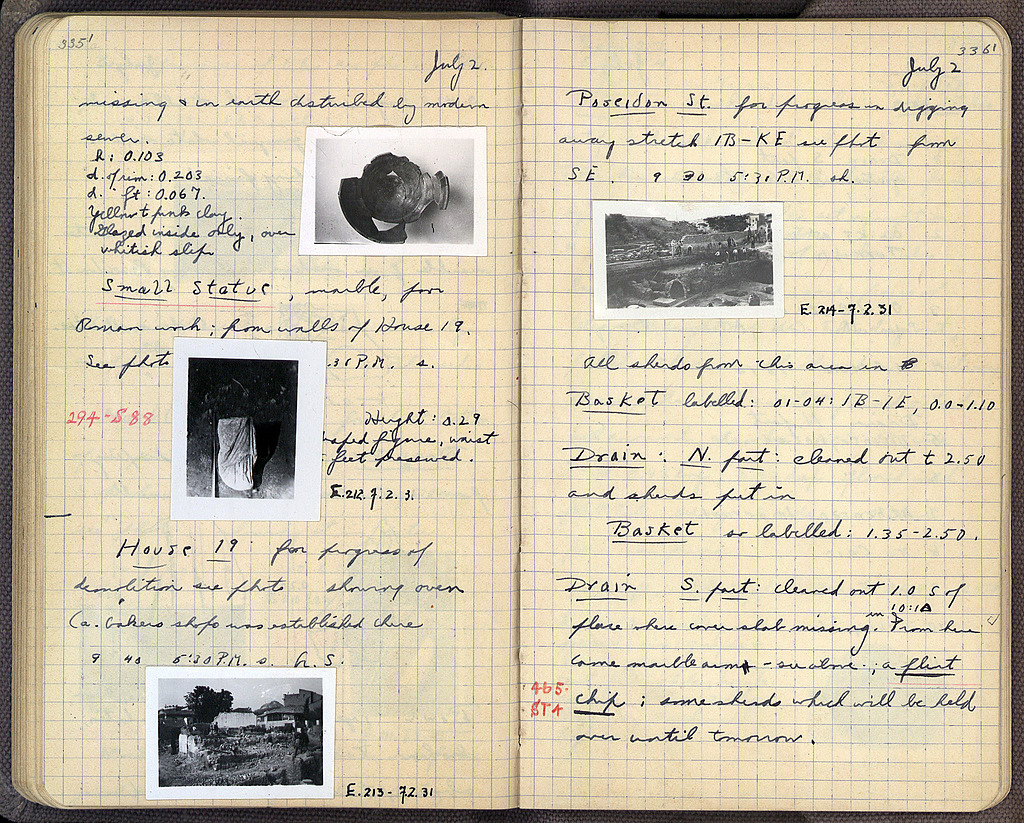 335'
July 2.
missing & in earth disturbed by modern
sewer.
h: 0.103
d. of rim: 0.203
d. ft: 0.067.
Yellow & pink clay.
Glazed inside only, over
whitish slip
Small Statue, marble, poor
Roman work; from walls of House 19.
See photo
P.M. s.
294-S 88
Height: 0.29
figure, waist
feet preserved.
E.212.7.2.3.
House 19: for progress of
demolition see photo showing oven
(a bakers shop was established there
9 40 5:30 P.M. s. G. S.
E.213-7.2.31
336'
July 2
Poseidon St. for progress in digging
away stretch 1B-KE see phot from
SE. 9 30 5:31 P.M. sh.
E.214-7.2.31
All sherds from this area in
Basket labelled: 01-04: 1B-1E, 0.0-1.10
Drain: N. part: cleaned out to 2.50
and sherds put in
Basket so labelled: 1.35-2.50.
Drain S. part: cleaned out 1.0 S of
in 10:1Δ
place where cover slab missing. From here
came marble arm - see above.; a flint
465-
ST4
chip; some sherds which will be held
over until tomorrow.